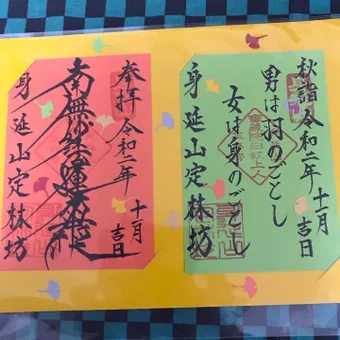 秋詣 令和二年 十一月 吉日
男は羽のごとし
女は身のごとし
身延山定林坊
奉拝 令和二年 十一月 吉日
南無妙法蓮華経
身延山定林坊